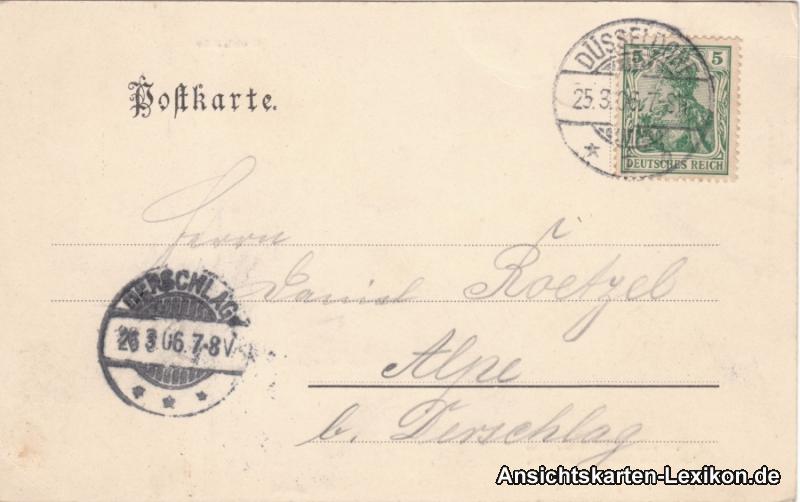 Postkarte.
DÜSSELDORF
25.3.06.7-8N
5 5
DEUTSCHES REICH
Herrn
Daniel Roetzel
DERSCHLAG
26 3 06. 7-8V
Alpe
b. Derschlag
Ansichtskarten-Lexikon.de